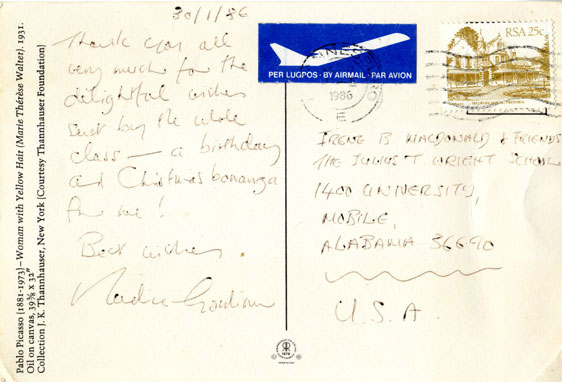 30/1/86
Thank you all
very much for the
delightful wishes
sent by the whole
class — a birthday
and Christmas bonanza
for me!
Best wishes.
Nadine Gordimer
PER LUGPOS · BY AIRMAIL · PAR AVION
RSA 25c
1986
IRENE B. MACDONALD & FRIENDS
THE JULIUS T. WRIGHT SCHOOL
1400 UNIVERSITY,
MOBILE,
ALABAMA 36690
U.S.A.
Pablo Picasso [1881-1973] – Woman with Yellow Hair (Marie Thérèse Walter). 1931.
Oil on canvas, 39⅜ x 32"
Collection J. K. Thannhauser, New York (Courtesy Thannhauser Foundation)